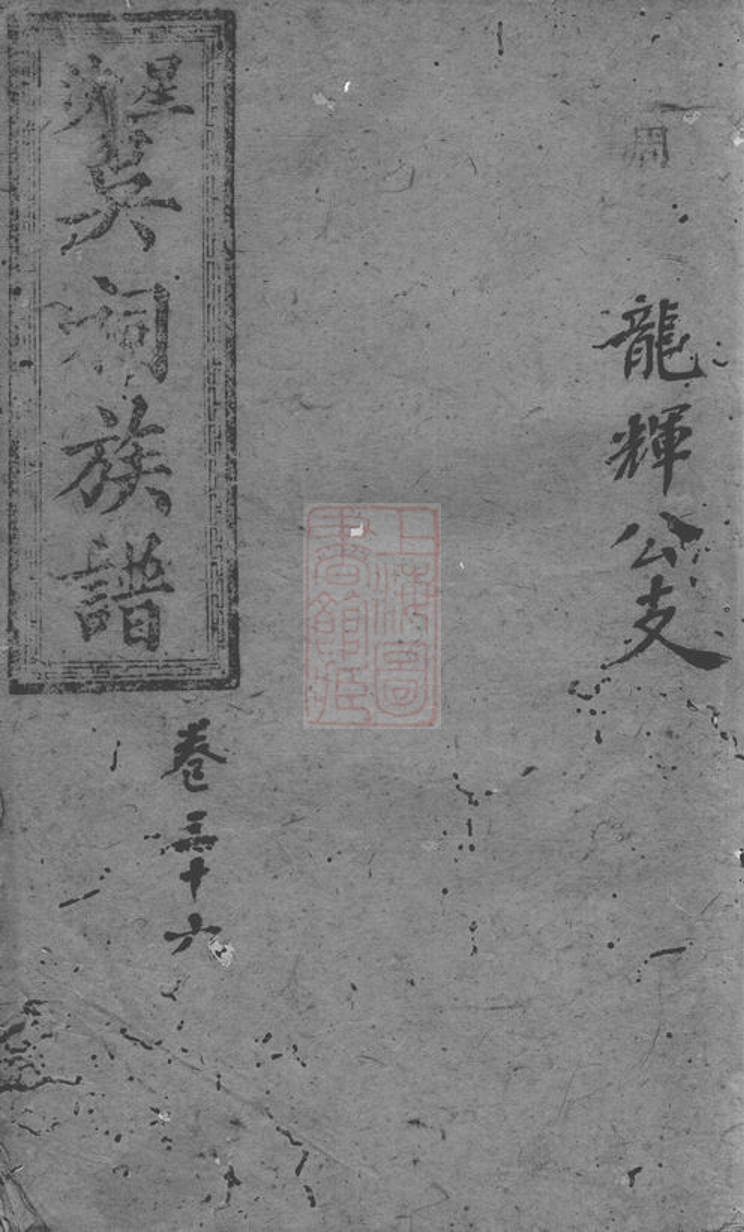 龍輝公支
上海圖
書館藏
星沙
吳祠族譜
卷三十六